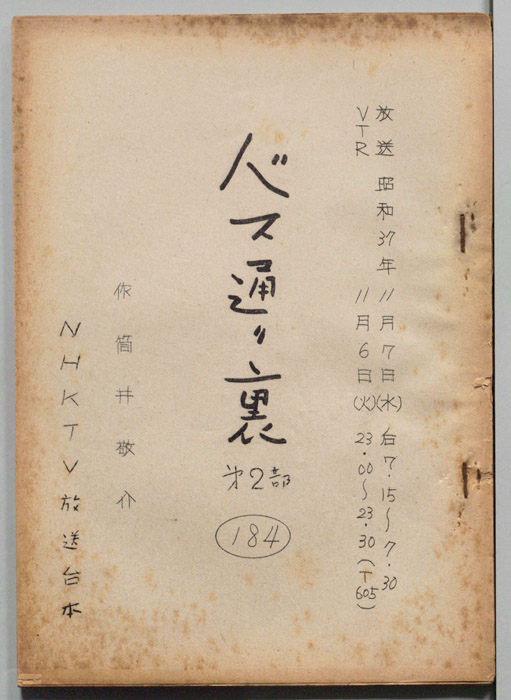 放送 昭和37年 11月7日(水) 后7・15〜7・30
VTR 11月6日(火) 23・00〜23・30(T605)
バス通り裏
第2部
184
作 筒井敬介
NHKTV放送台本